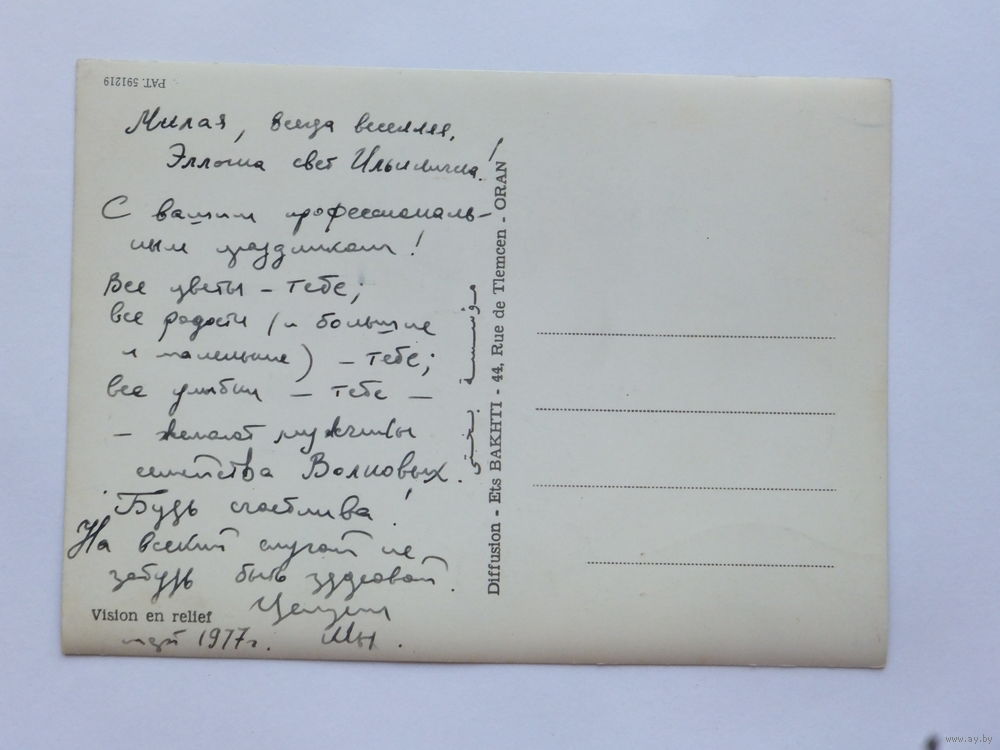 PAT. 591219
Милая, всегда веселая,
Эллочка свет Ильинична!
С вашим профессиональ-
ным праздником!
Все цветы – тебе;
все радости (и большие
и маленькие) – тебе;
все улыбки – тебе –
– желают мужчины
семейства Волковых.
Будь счастлива!
На всякий случай не
забудь быть здоровой.
Целуем
Мы.
май 1977г.
Vision en relief
Diffusion - Ets BAKHTI - 44, Rue de Tlemcen - ORAN
مؤسسة بختي
www.ay.by